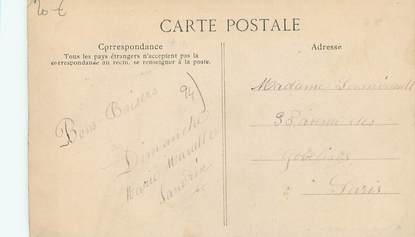 20 €
CARTE POSTALE
Correspondance
Tous les pays étrangers n'acceptent pas la
correspondance au recto, se renseigner à la poste.
Adresse
94)
Bons Baisers
Dimanche
Marie
Madame
des
Gobelins
à Paris